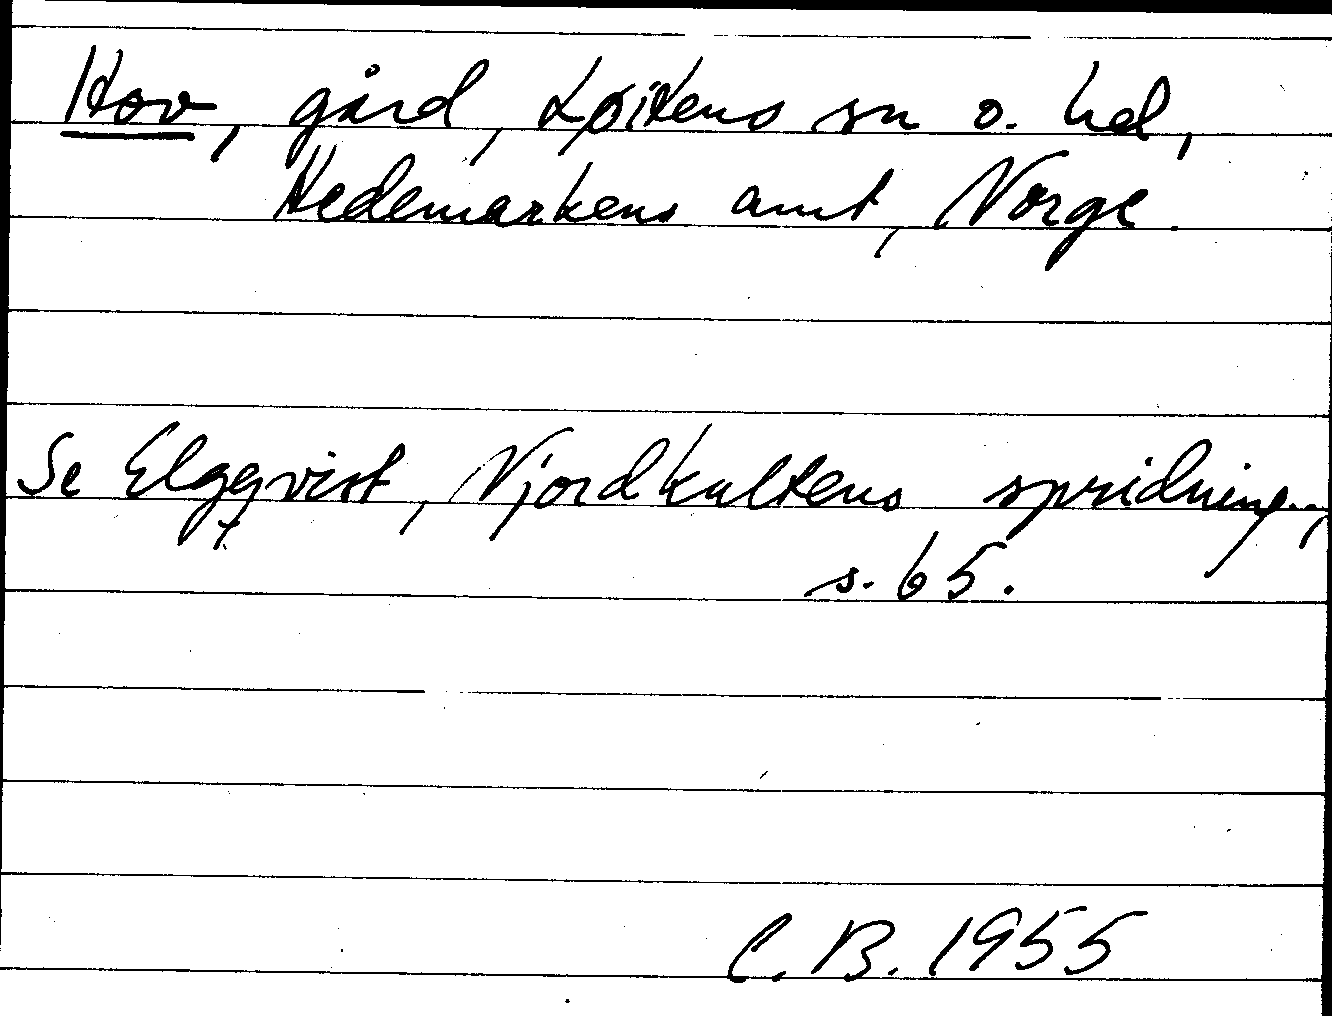 Hov, gård, Løitens sn o. hd,
Hedemarkens amt, Norge.
Se Elgqvist, Njordkultens spridning..,
s. 65.
C. B. 1955